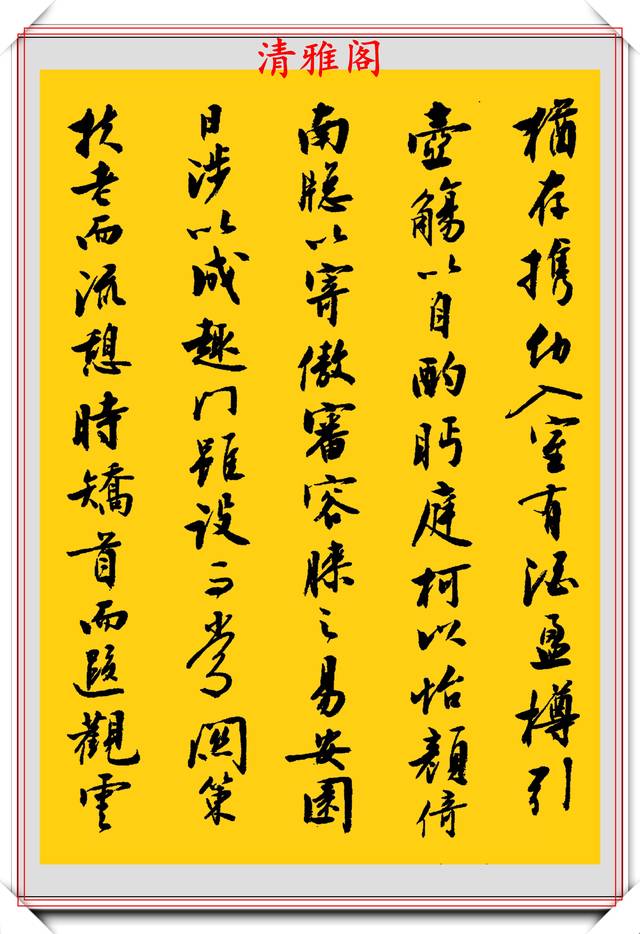 清雅阁
猶存携幼入室有酒盈樽引
壺觴以自酌眄庭柯以怡顏倚
南牕以寄傲審容膝之易安園
日涉以成趣門雖設而常關策
扶老而流憩時矯首而遐觀雲